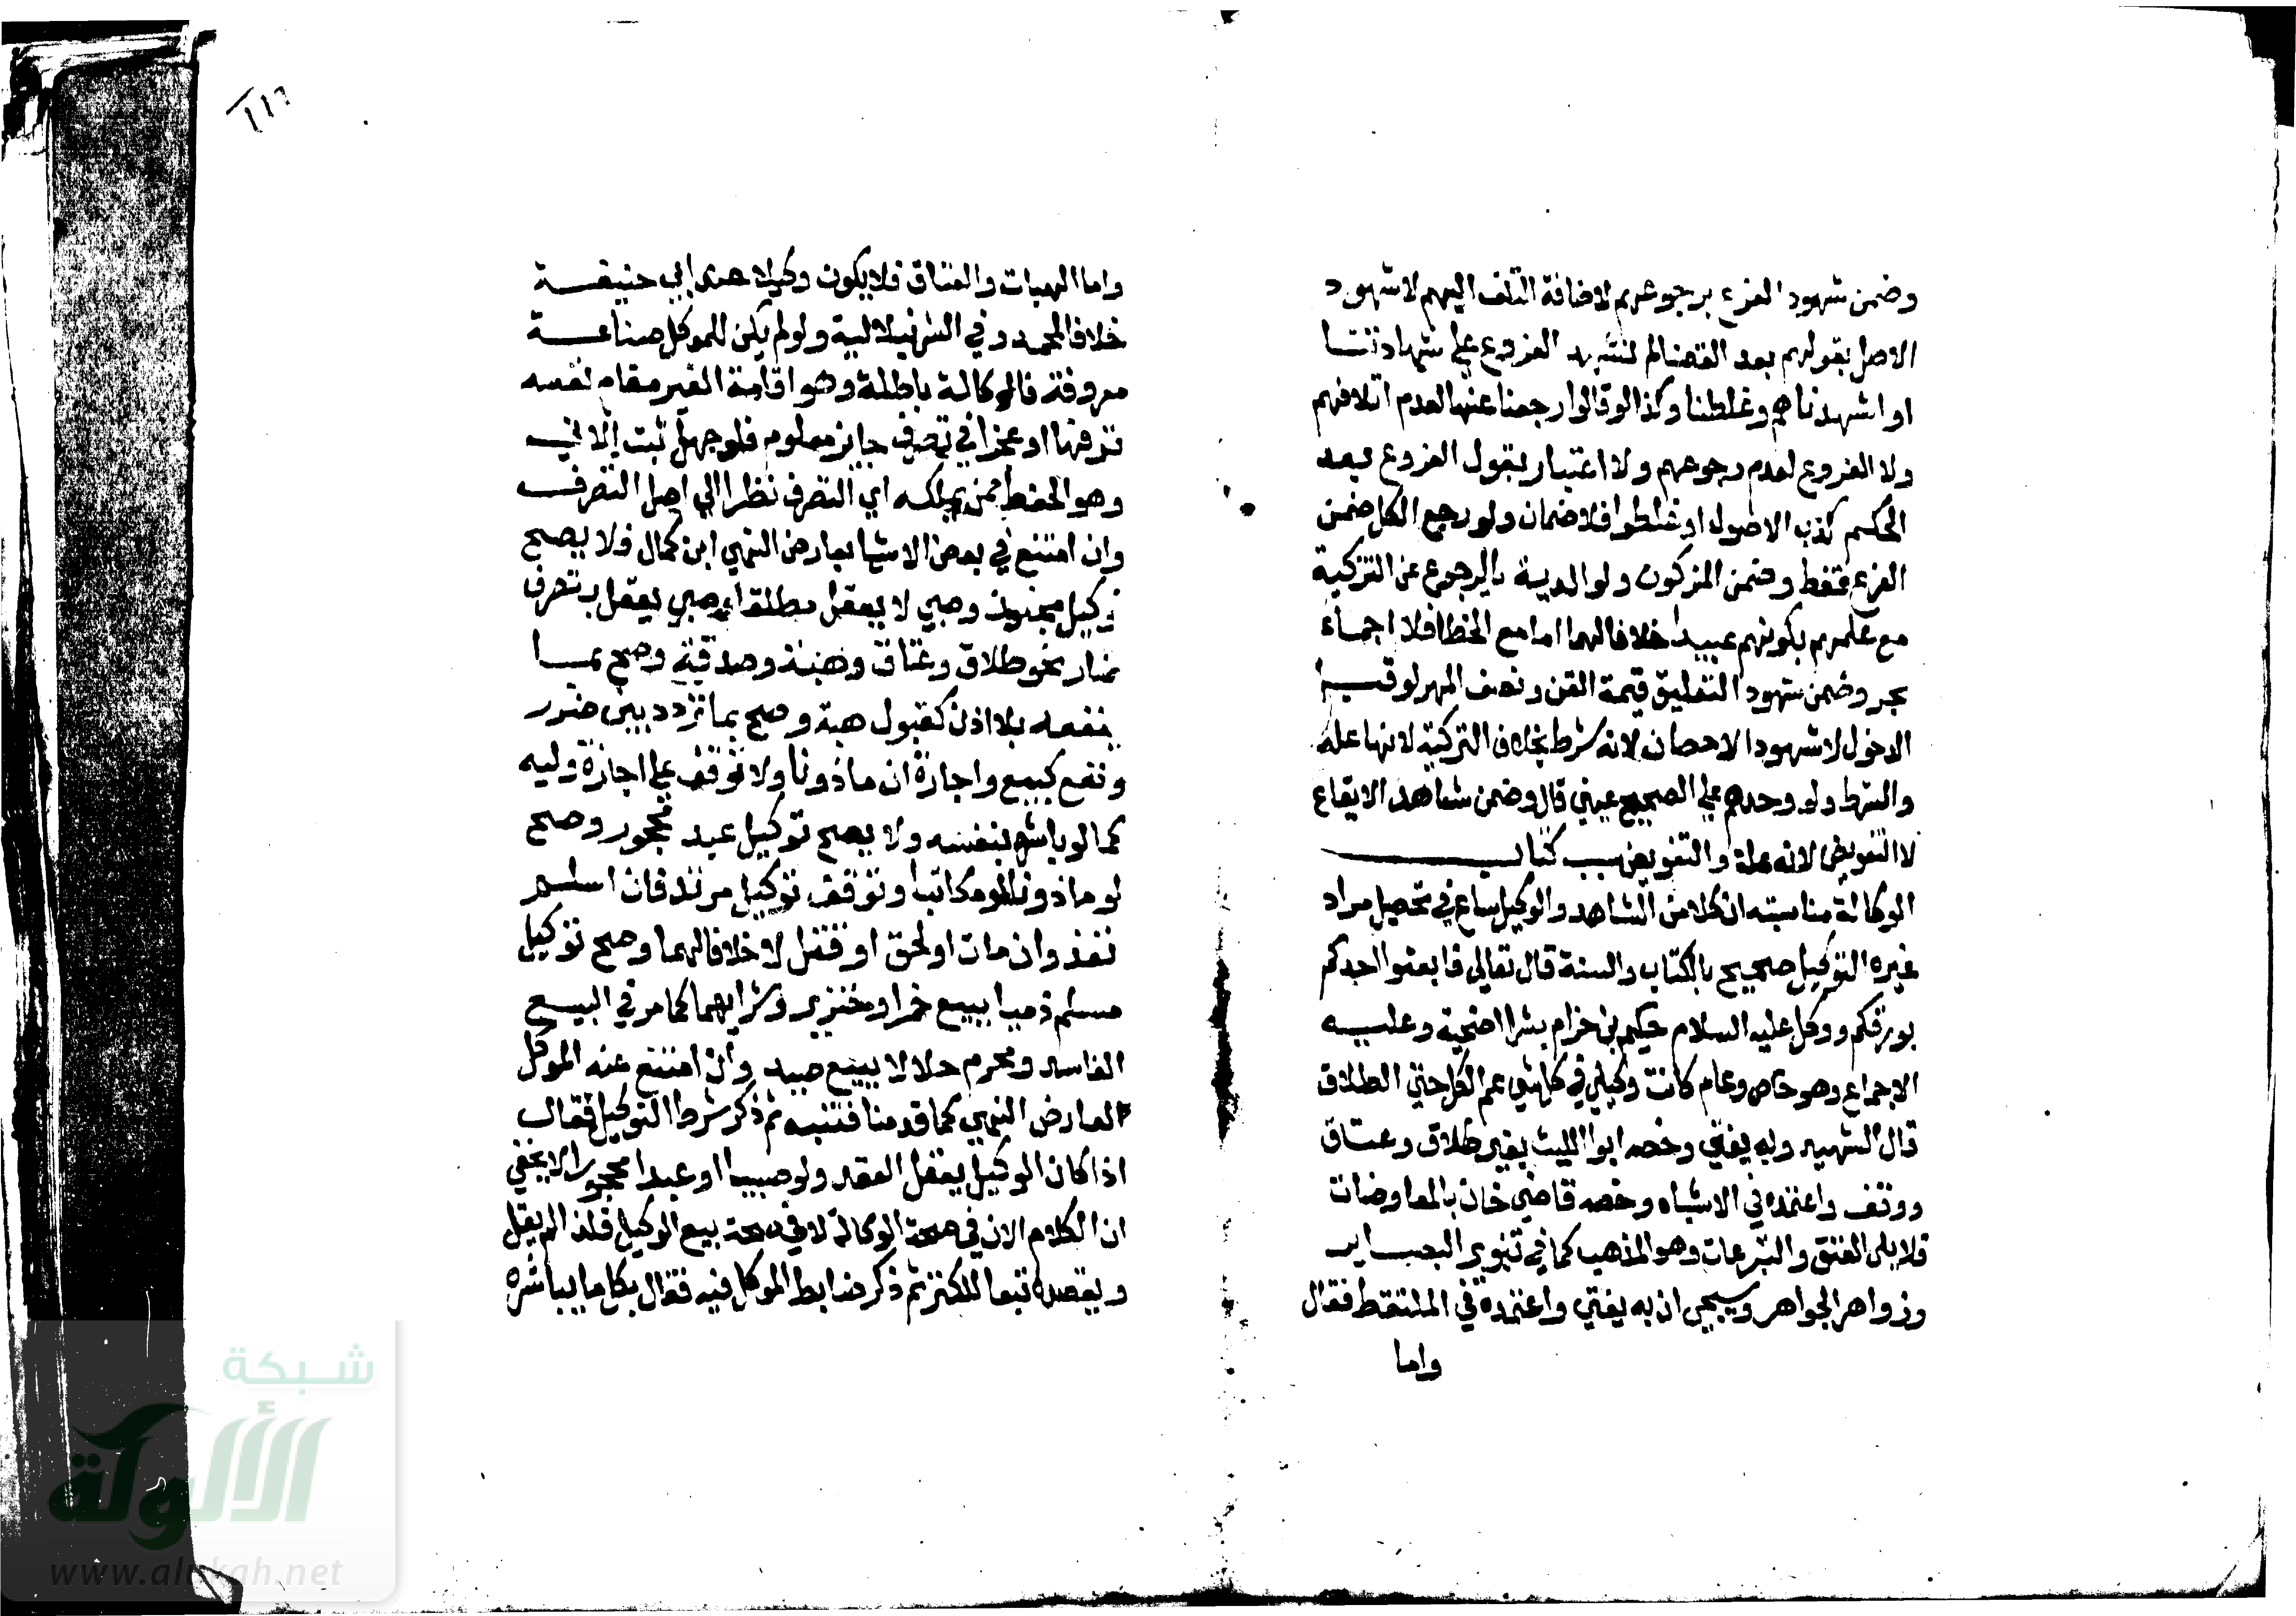 وضمن شهود الفرع برجوعهم لاضافة التلف اليهم لا شهود
الاصل بقولهم بعد القضا لم نشهد الفروع علي شهادتنا
او اشهدناهم وغلطنا وكذا لو قالوا رجعنا عنها لعدم اتلافهم
ولا الفروع لعدم رجوعهم ولا اعتبار بقول الفروع بعد
الحكم كذب الاصول او غلطوا فلا ضمان ولو رجع الكل ضمن
الفرع فقط وضمن المزكون ولو الدية بالرجوع عن التزكية
مع علمهم بكونهم عبيدا خلافا لهما اما مع الخطا فلا اجماعا
بحر وضمن شهود التعليق قيمة القن ونصف المهر لو قبل
الدخول لا شهود الاحصان لانه شرط بخلاف التزكية لانها علة
والشرط ولو وحدهم علي الصحيح عيني قال وضمن شاهد الايقاع
لا التفويض لانه علة والتفويض سبب كتاب
الوكالة مناسبته ان كلا من الشاهد والوكيل ساع في تحصيل مراد
غيره التوكيل صحيح بالكتاب والسنة قال تعالي فابعثوا احدكم
بورقكم ووكل عليه السلام حكيم بن حزام بشرا اضحية وعليه
الاجماع وهو خاص وعام كانت وكيلي في كل شي عم الكل حتي الطلاق
قال الشهيد وبه يفتي وخصه ابو الليث بغير طلاق وعتاق
ووقف واعتمده في الاشباه وخصه قاضي خان بالمعاوضات
فلا يلي العتق والتبرعات وهو المذهب كما في تنوير البصاير
وزواهر الجواهر وسيجي ان به يفتي واعتمده في الملتقط فقال
واما
٢١٦
واما الهبات والعتاق فلا يكون وكيلا عند ابي حنيفة
خلافا لمحمد وفي الشرنبلالية ولو لم يكن للموكل صناعة
معروفة فالوكالة باطلة وهو اقامة الغير مقام نفسه
ترفها او عجزا في تصرف جايز معلوم فلو جهل ثبت الادني
وهو الحفظ ممن يملكه اي التصرف نظرا الي اصل التصرف
وان امتنع في بعض الاشيا بعارض النهي ابن كمال فلا يصح
توكيل مجنون وصبي لا يعقل مطلقا وصبي يعقل بتصرف
ضار نحو طلاق وعتاق وهبة وصدقة وصح بما
ينفعه بلا اذن كقبول هبة وصح بما تردد بين ضرر
ونفع كبيع واجارة ان ماذونا ولا توقف علي اجازة وليه
كما لو باشر بنفسه ولا يصح توكيل عبد محجور وصح
لو ماذونا او مكاتبا وتوقف توكيل مرتد فان اسلم
نفذ وان مات او لحق او قتل لا خلافا لهما وصح توكيل
مسلم ذميا ببيع خمر او خنزير وشرايهما كما مر في البيع
الفاسد ومحرم حلالا ببيع صيد وان امتنع عنه الموكل
لعارض النهي كما قدمنا فتنبه ثم ذكر شرط التوكيل فقال
اذا كان الوكيل يعقل العقد ولو صبيا او عبدا محجورا لا يخفي
ان الكلام الان في صحة الوكالة لا في صحة بيع الوكيل فلذا لم يقل
ويقصده تبعا للكنز ثم ذكر ضابط الموكل فيه فقال بكل ما يباشره
شبكة
الألوكة
www.alukah.net